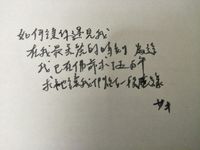 如何讓你遇見我
在我最美麗的時刻 為這
我已在佛前求了五百年
求他讓我們結一段塵緣